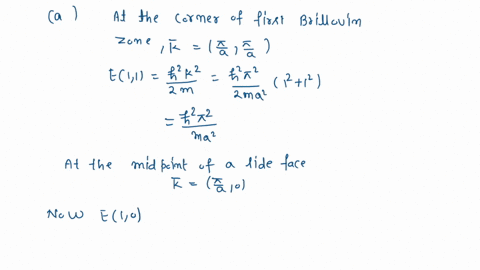 (a) At the corner of first Brillouin
zone, k̄ = (π/a, π/a)
E(1,1) = ħ²k²/2m = ħ²π²/2ma² (1²+1²)
= ħ²π²/ma²
At the midpoint of a side face
k̄ = (π/a, 0)
Now E(1,0)